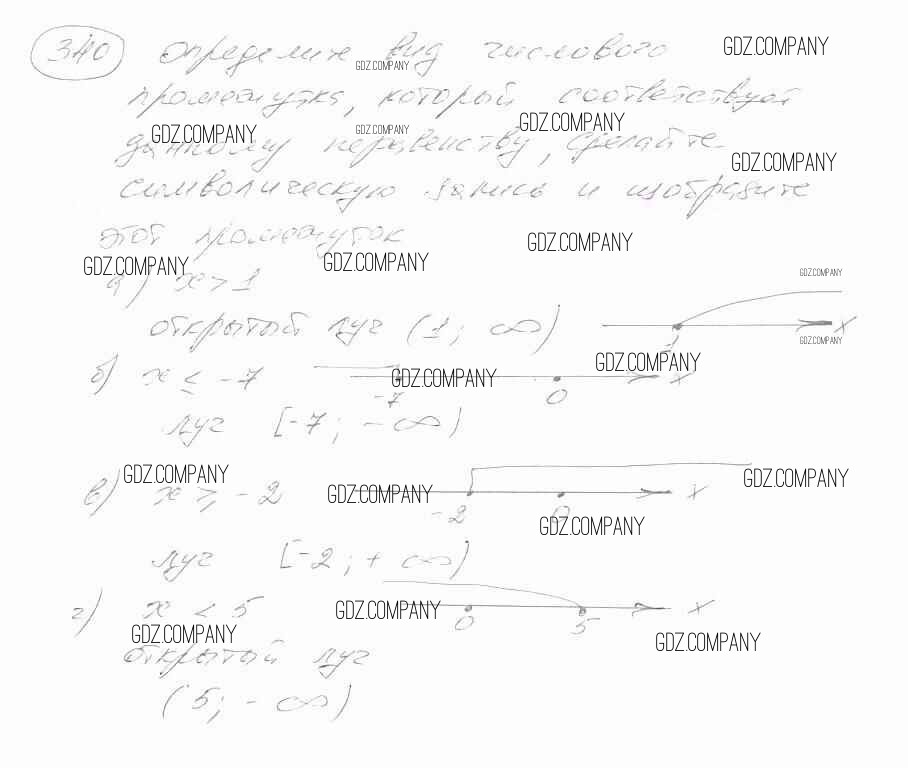 340 Определите вид числового GDZ.COMPANY
GDZ.COMPANY
промежутка, который соответствует
GDZ.COMPANY GDZ.COMPANY GDZ.COMPANY
данному неравенству, сделайте
GDZ.COMPANY
символическую запись и изобразите
этот промежуток GDZ.COMPANY
GDZ.COMPANY GDZ.COMPANY GDZ.COMPANY
а) x > 1
открытый луч (1; ∞) 1 x
GDZ.COMPANY GDZ.COMPANY
б) x ≤ -7 GDZ.COMPANY -7 0 x
луч [-7; -∞)
GDZ.COMPANY GDZ.COMPANY
в) x ≥ -2 GDZ.COMPANY -2 0 x
GDZ.COMPANY
луч [-2; +∞)
г) x < 5 GDZ.COMPANY 0 5 x
GDZ.COMPANY GDZ.COMPANY
открытый луч
(5; -∞)